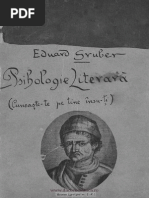 Eduard Gruber
Psihologie Literară
(Cunoaşte-te pe tine însu-ţi)